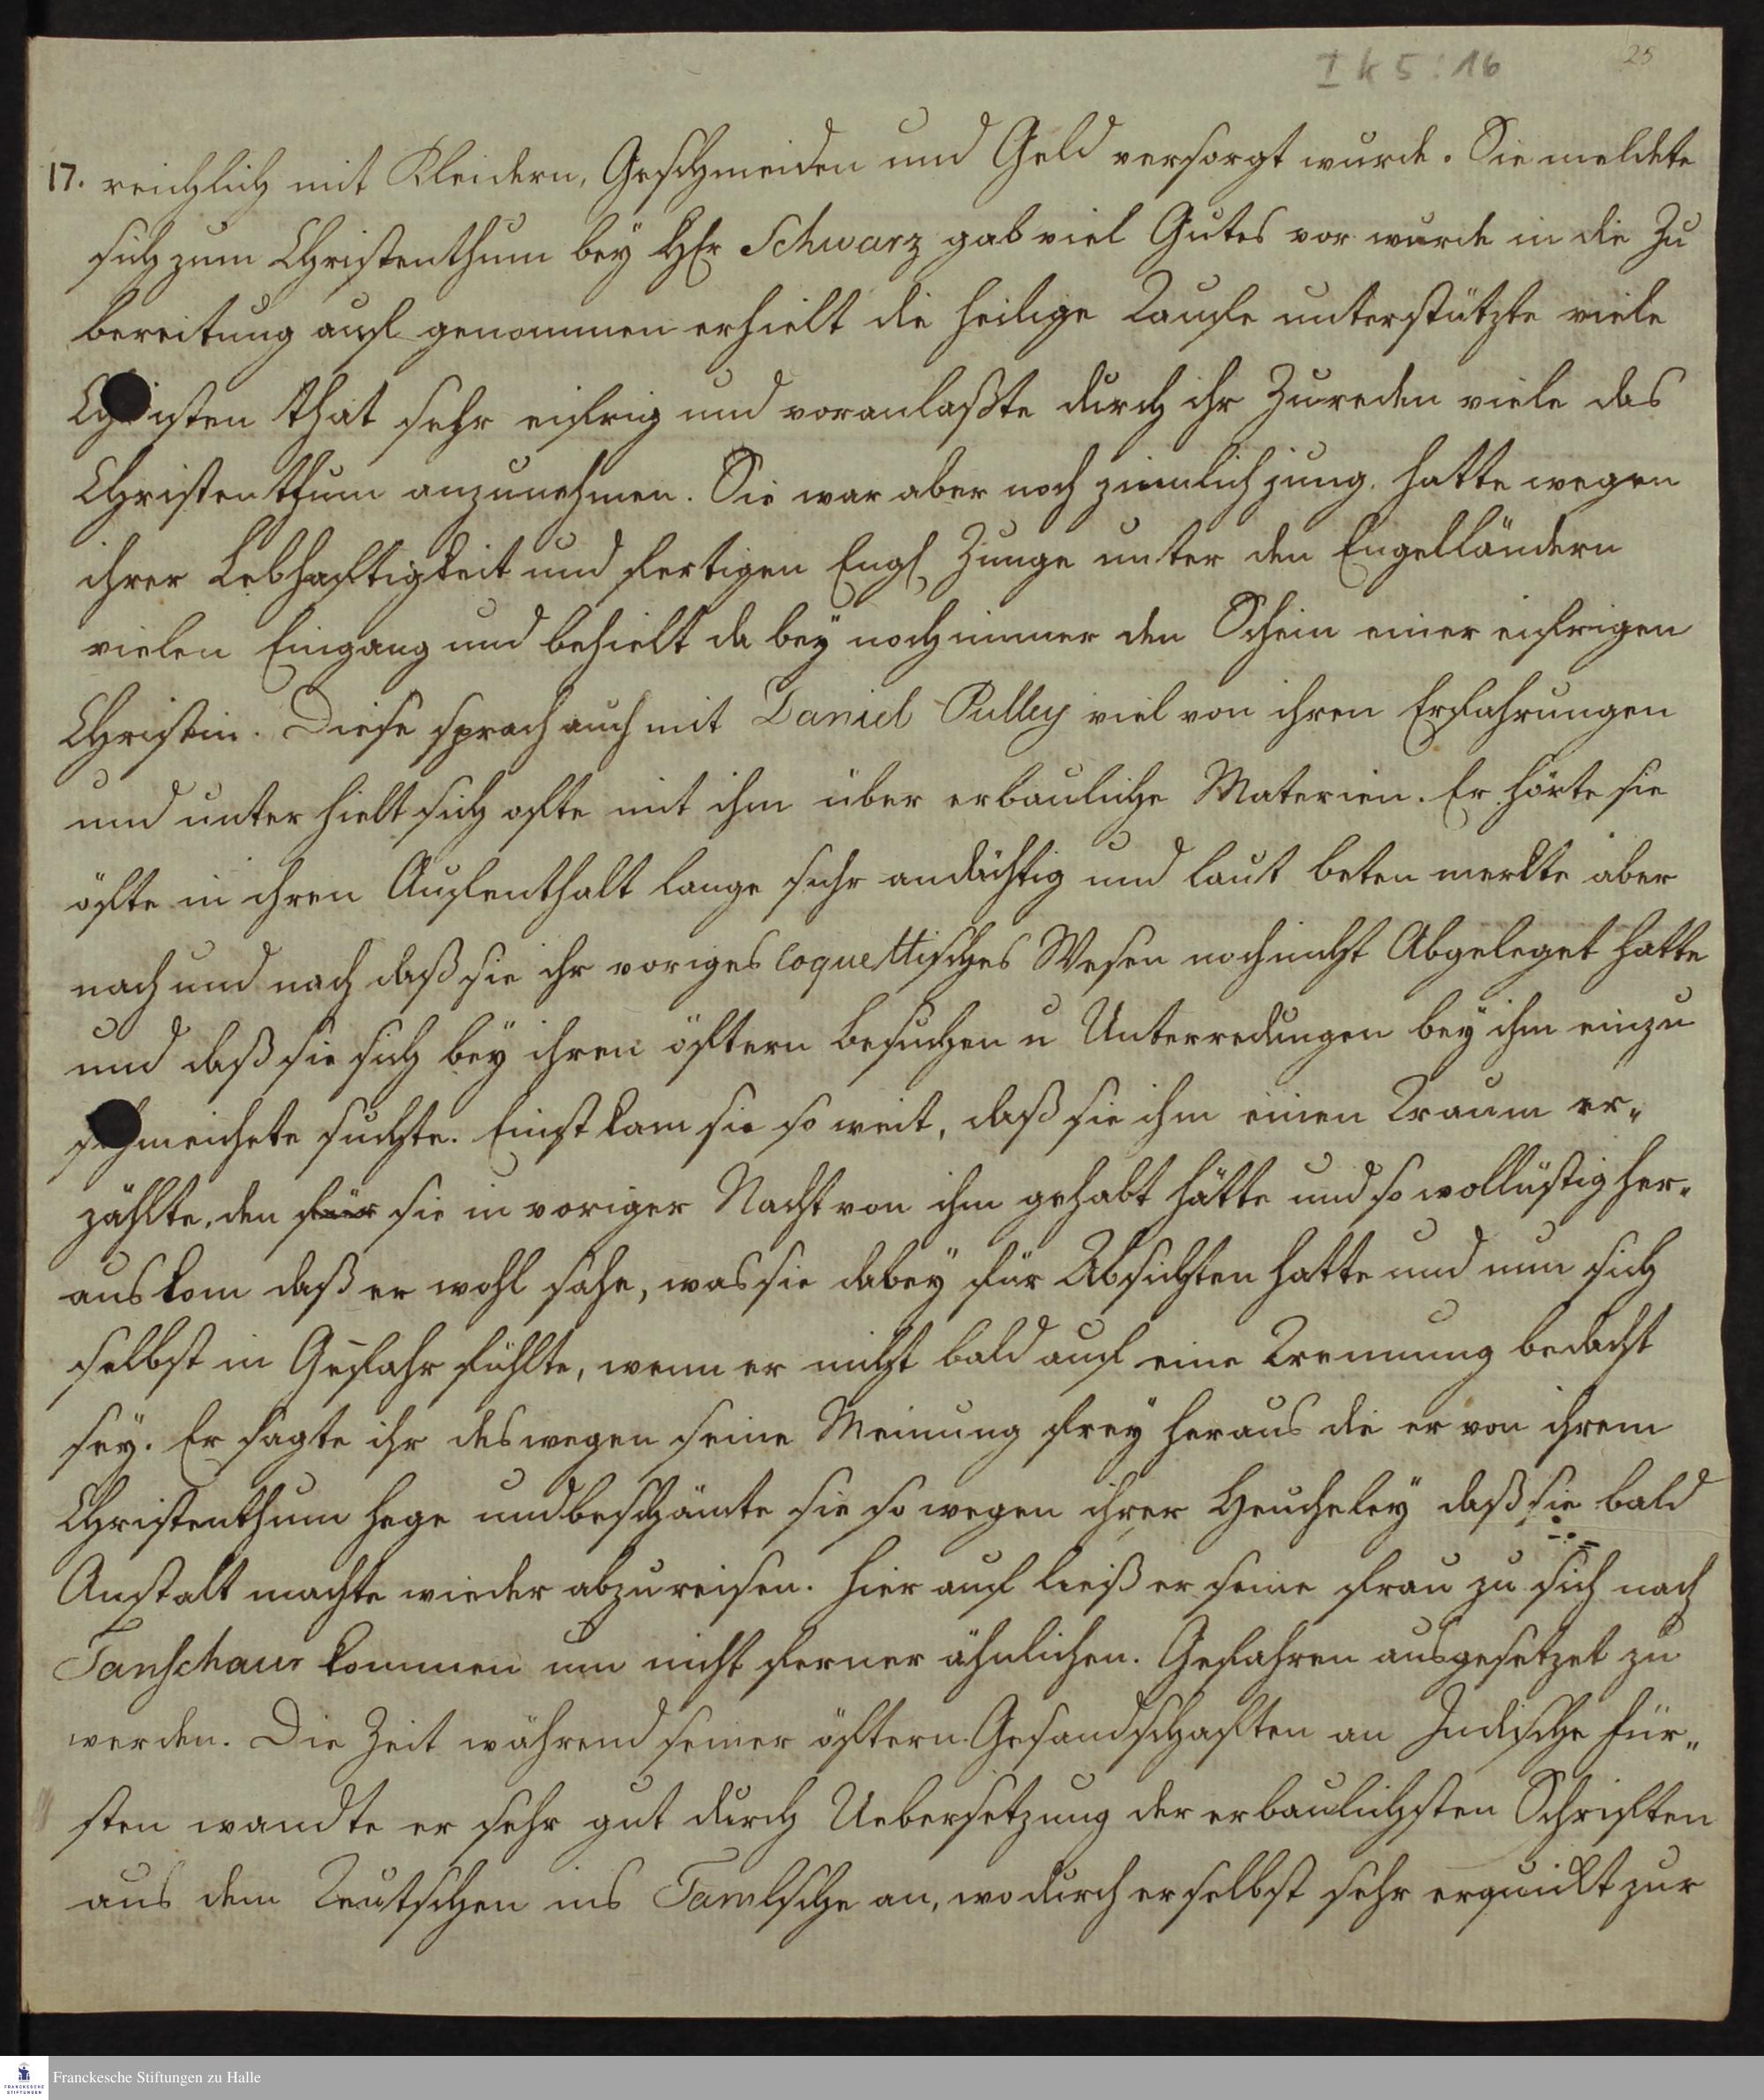 I k 5:16
25
17. reichlich mit Kleidern, Geschmeiden und Geld versorgt wurde. Sie meldete
sich zum Christenthum bey HEr Schwarz gab viel Gutes vor wurde in die Zu
bereitung auf genommen erhielt die heilige Taufe unterstützte viele
Christen that sehr eifrig und veranlaßte durch ihr Zureden viele das
Christenthum anzunehmen. Sie war aber noch ziemlich jung, hatte wegen
ihrer Lebhaftigkeit und fertigen Engl. Zunge unter den Engelländern
vielen Eingang und behielt da bey noch immer den Schein einer eifrigen
Christin. Diese sprach auch mit Daniel Pulley viel von ihren Erfahrungen
und unter hielt sich ofte mit ihm über erbauliche Materien. Er hörte sie
öfte in ihren Aufenthalt lange sehr andächtig und laut beten merkte aber
nach und nach daß sie ihr voriges coquettisches Wesen noch nicht Abgeleget hatte
und daß sie sich bey ihren öftern Besuchen u Unterredungen bey ihm einzu
schmeichete suchte. Einst kam sie so weit, daß sie ihm einen Traum er„
zählte, den für sie in voriger Nacht von ihm gehabt hätte und so wollüstig her„
aus kom daß er wohl sahe, was sie dabey für Absichten hatte und nun sich
selbst in Gefahr fühlte, wenn er nicht bald auf eine Trennung bedacht
sey. Er sagte ihr deswegen seine Meinung frey heraus die er von ihrem
Christenthum hege und beschämte sie so wegen ihrer Heucheley daß sie bald
Anstalt machte wieder abzureisen. Hier auf ließ er seine Frau zu sich nach
Tanschaur kommen um nicht ferner ähnlichen. Gefahren ausgesetzet zu
werden. Die Zeit während seiner öftern Gesandschaften an Indische Für„
sten wandte er sehr gut durch Uebersetzung der erbaulichsten Schriften
aus dem Teutschen ins Tamlsche an, wodurch er selbst sehr erquickt zur
FRANCKESCHE STIFTUNGEN
Franckesche Stiftungen zu Halle